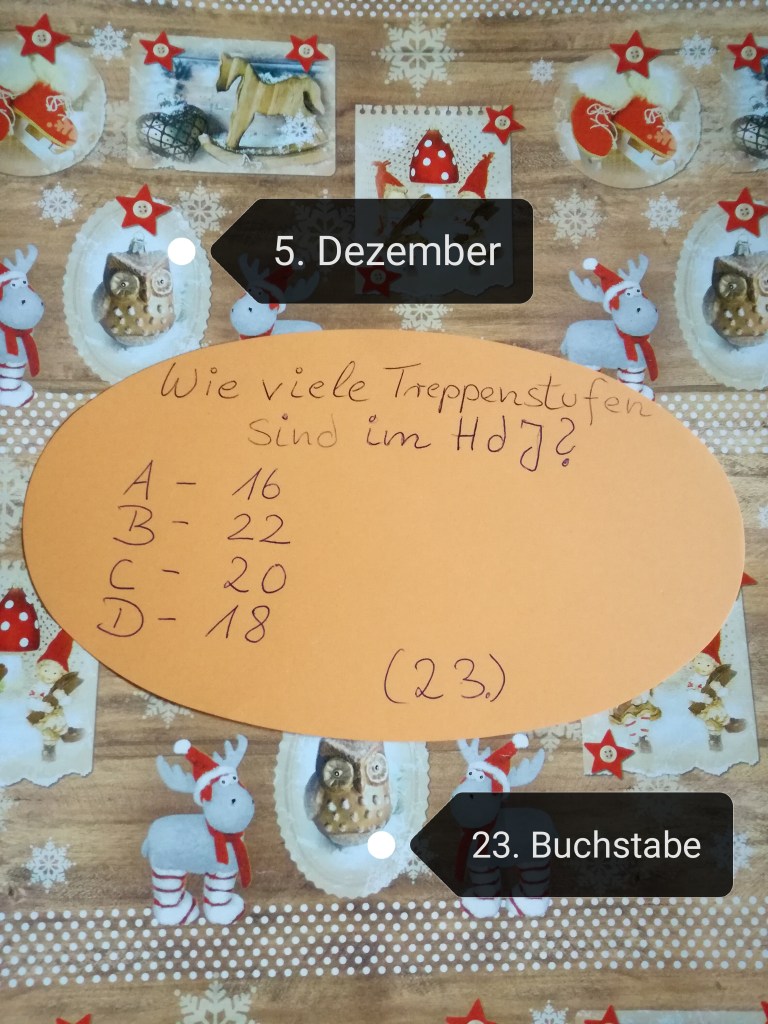 5. Dezember
Wie viele Treppenstufen
sind im HdJ?
A - 16
B - 22
C - 20
D - 18
(23.)
23. Buchstabe